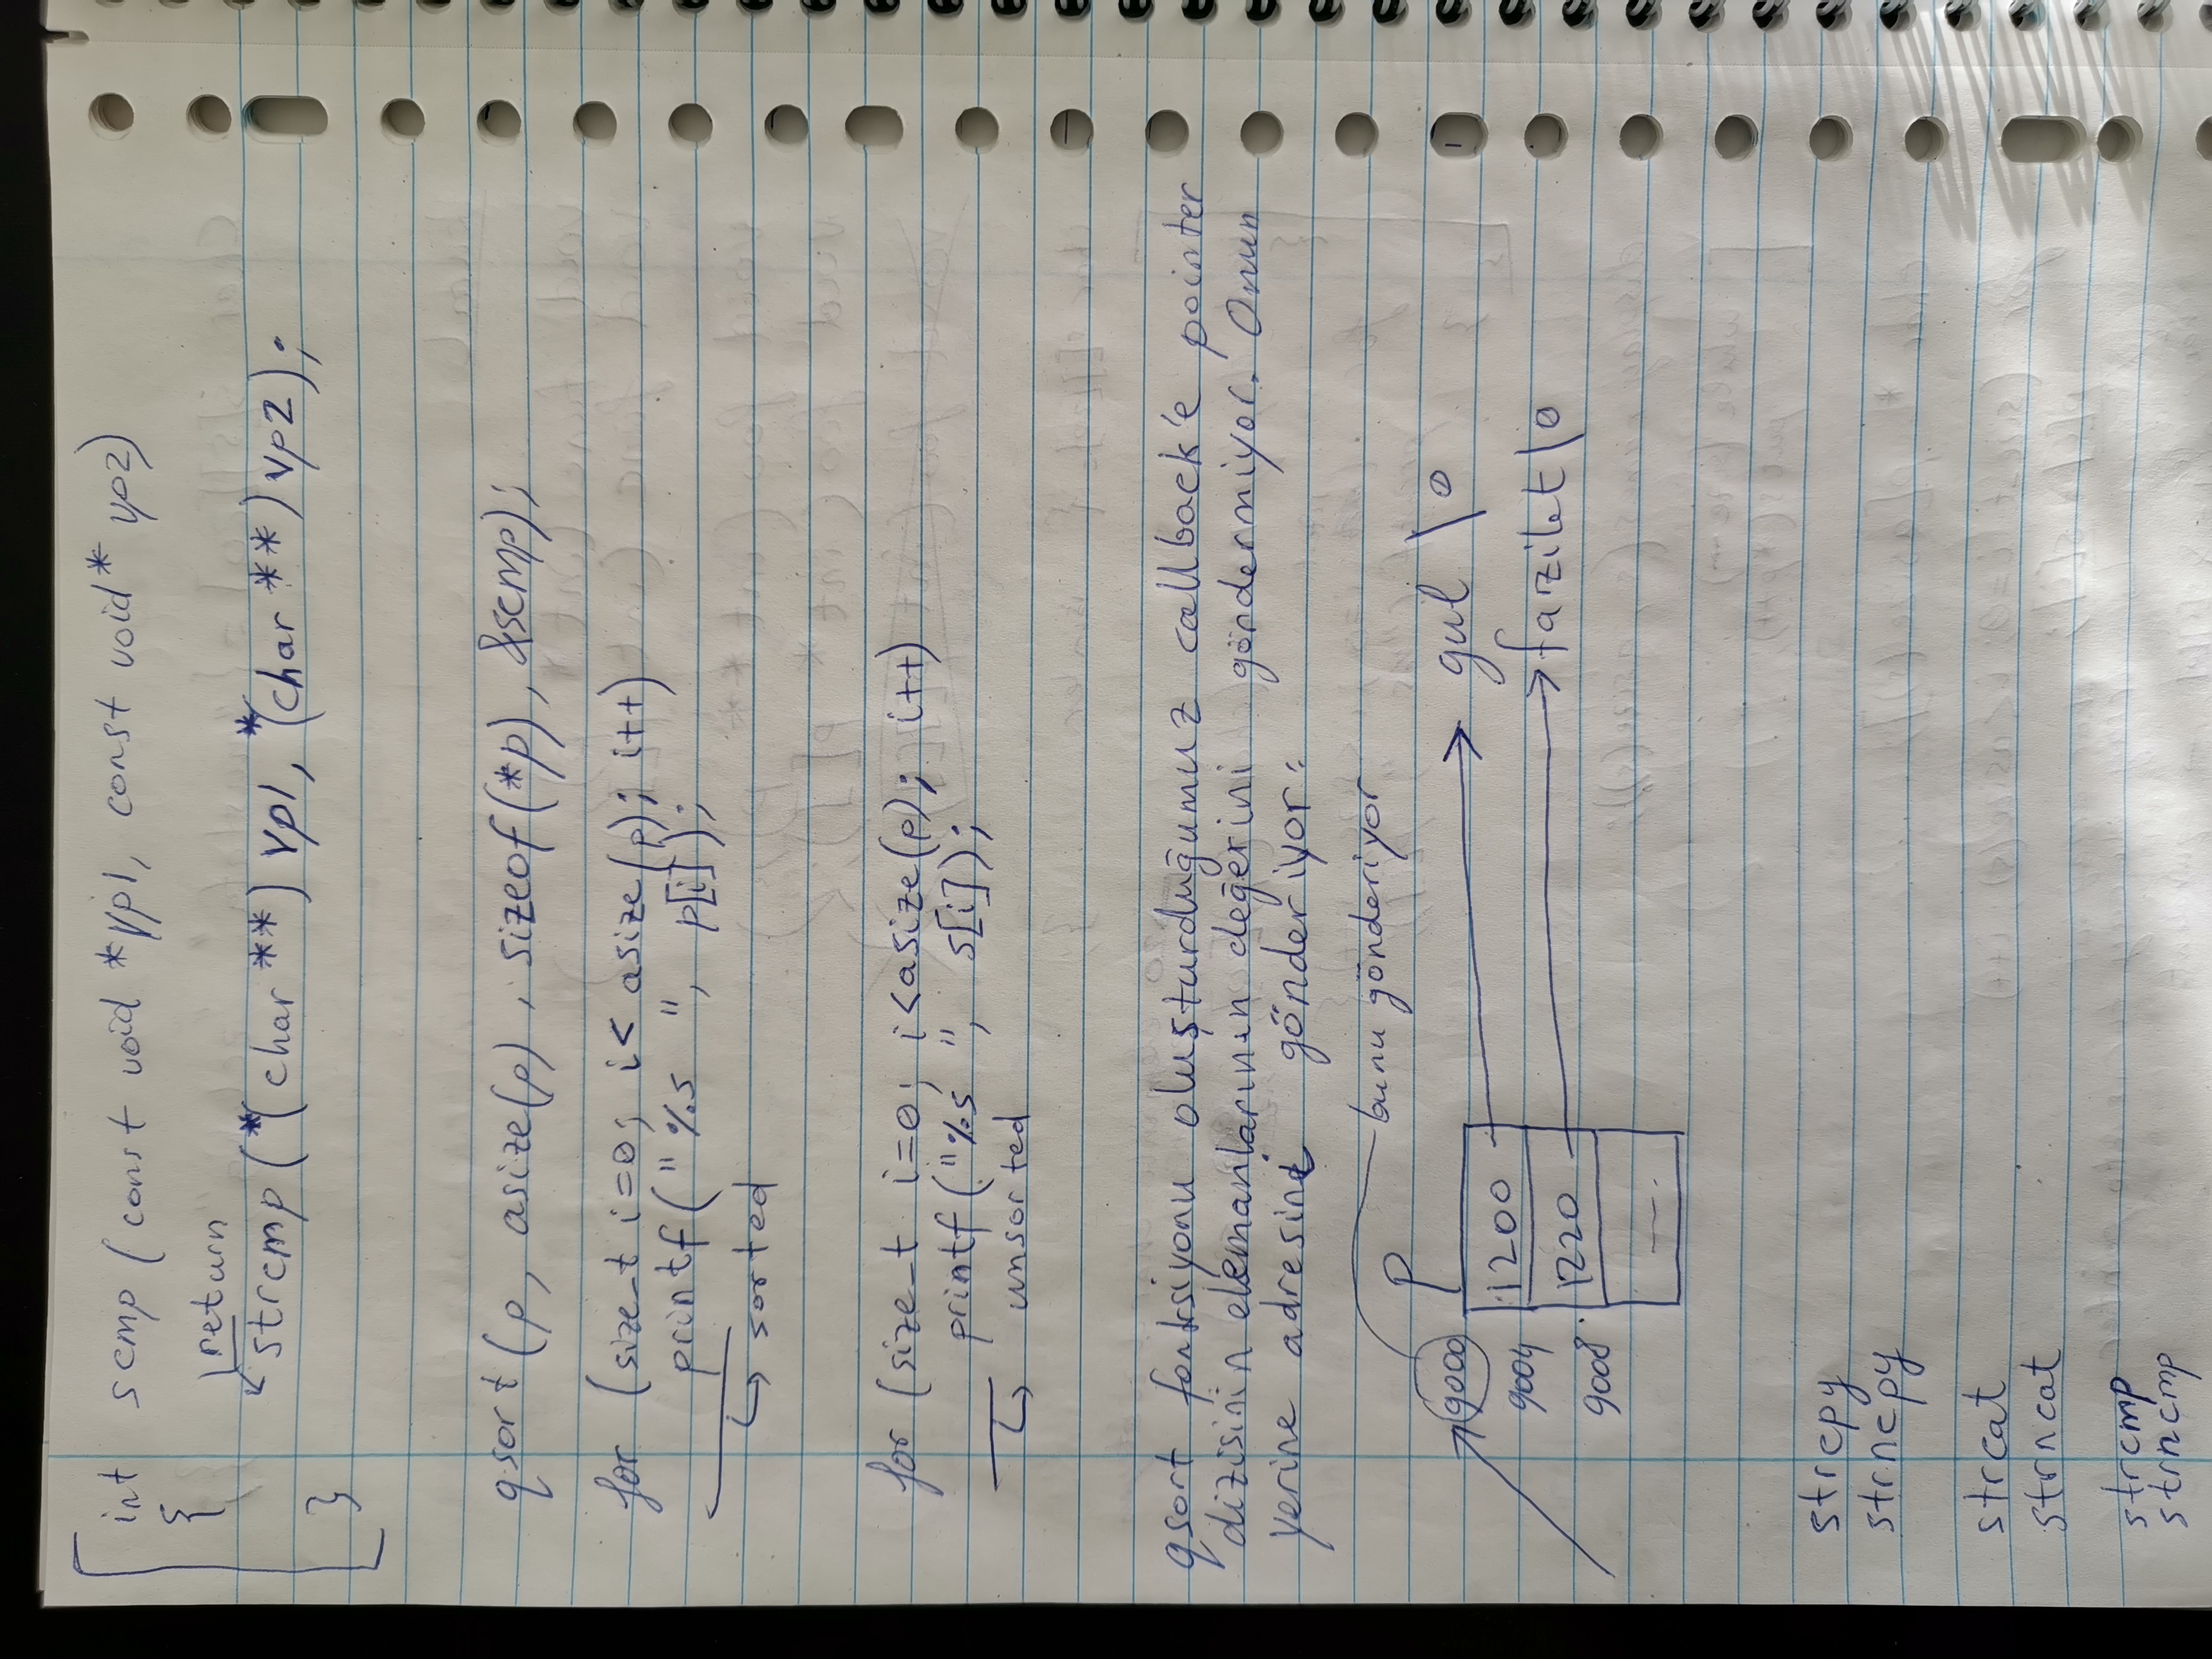 int scmp (const void *vp1, const void* vp2)
{
return
strcmp (*(char **) vp1, *(char **) vp2);
}
qsort (p, asize(p), sizeof(*p), &scmp);
for (size_t i=0; i< asize(p); i++)
printf("%s ", p[i]);
sorted
for (size_t i=0; i<asize(p); i++)
printf("%s ", s[i]);
unsorted
qsort fonksiyonu oluşturduğumuz callback'e pointer
dizisinin elemanlarının değerini göndermiyor. Onun
yerine adresini gönderiyor:
bunu gönderiyor
p
9000
gul \0
1200
9004
fazilet\0
1220
9008
strcpy
strncpy
strcat
strncat
strcmp
strncmp